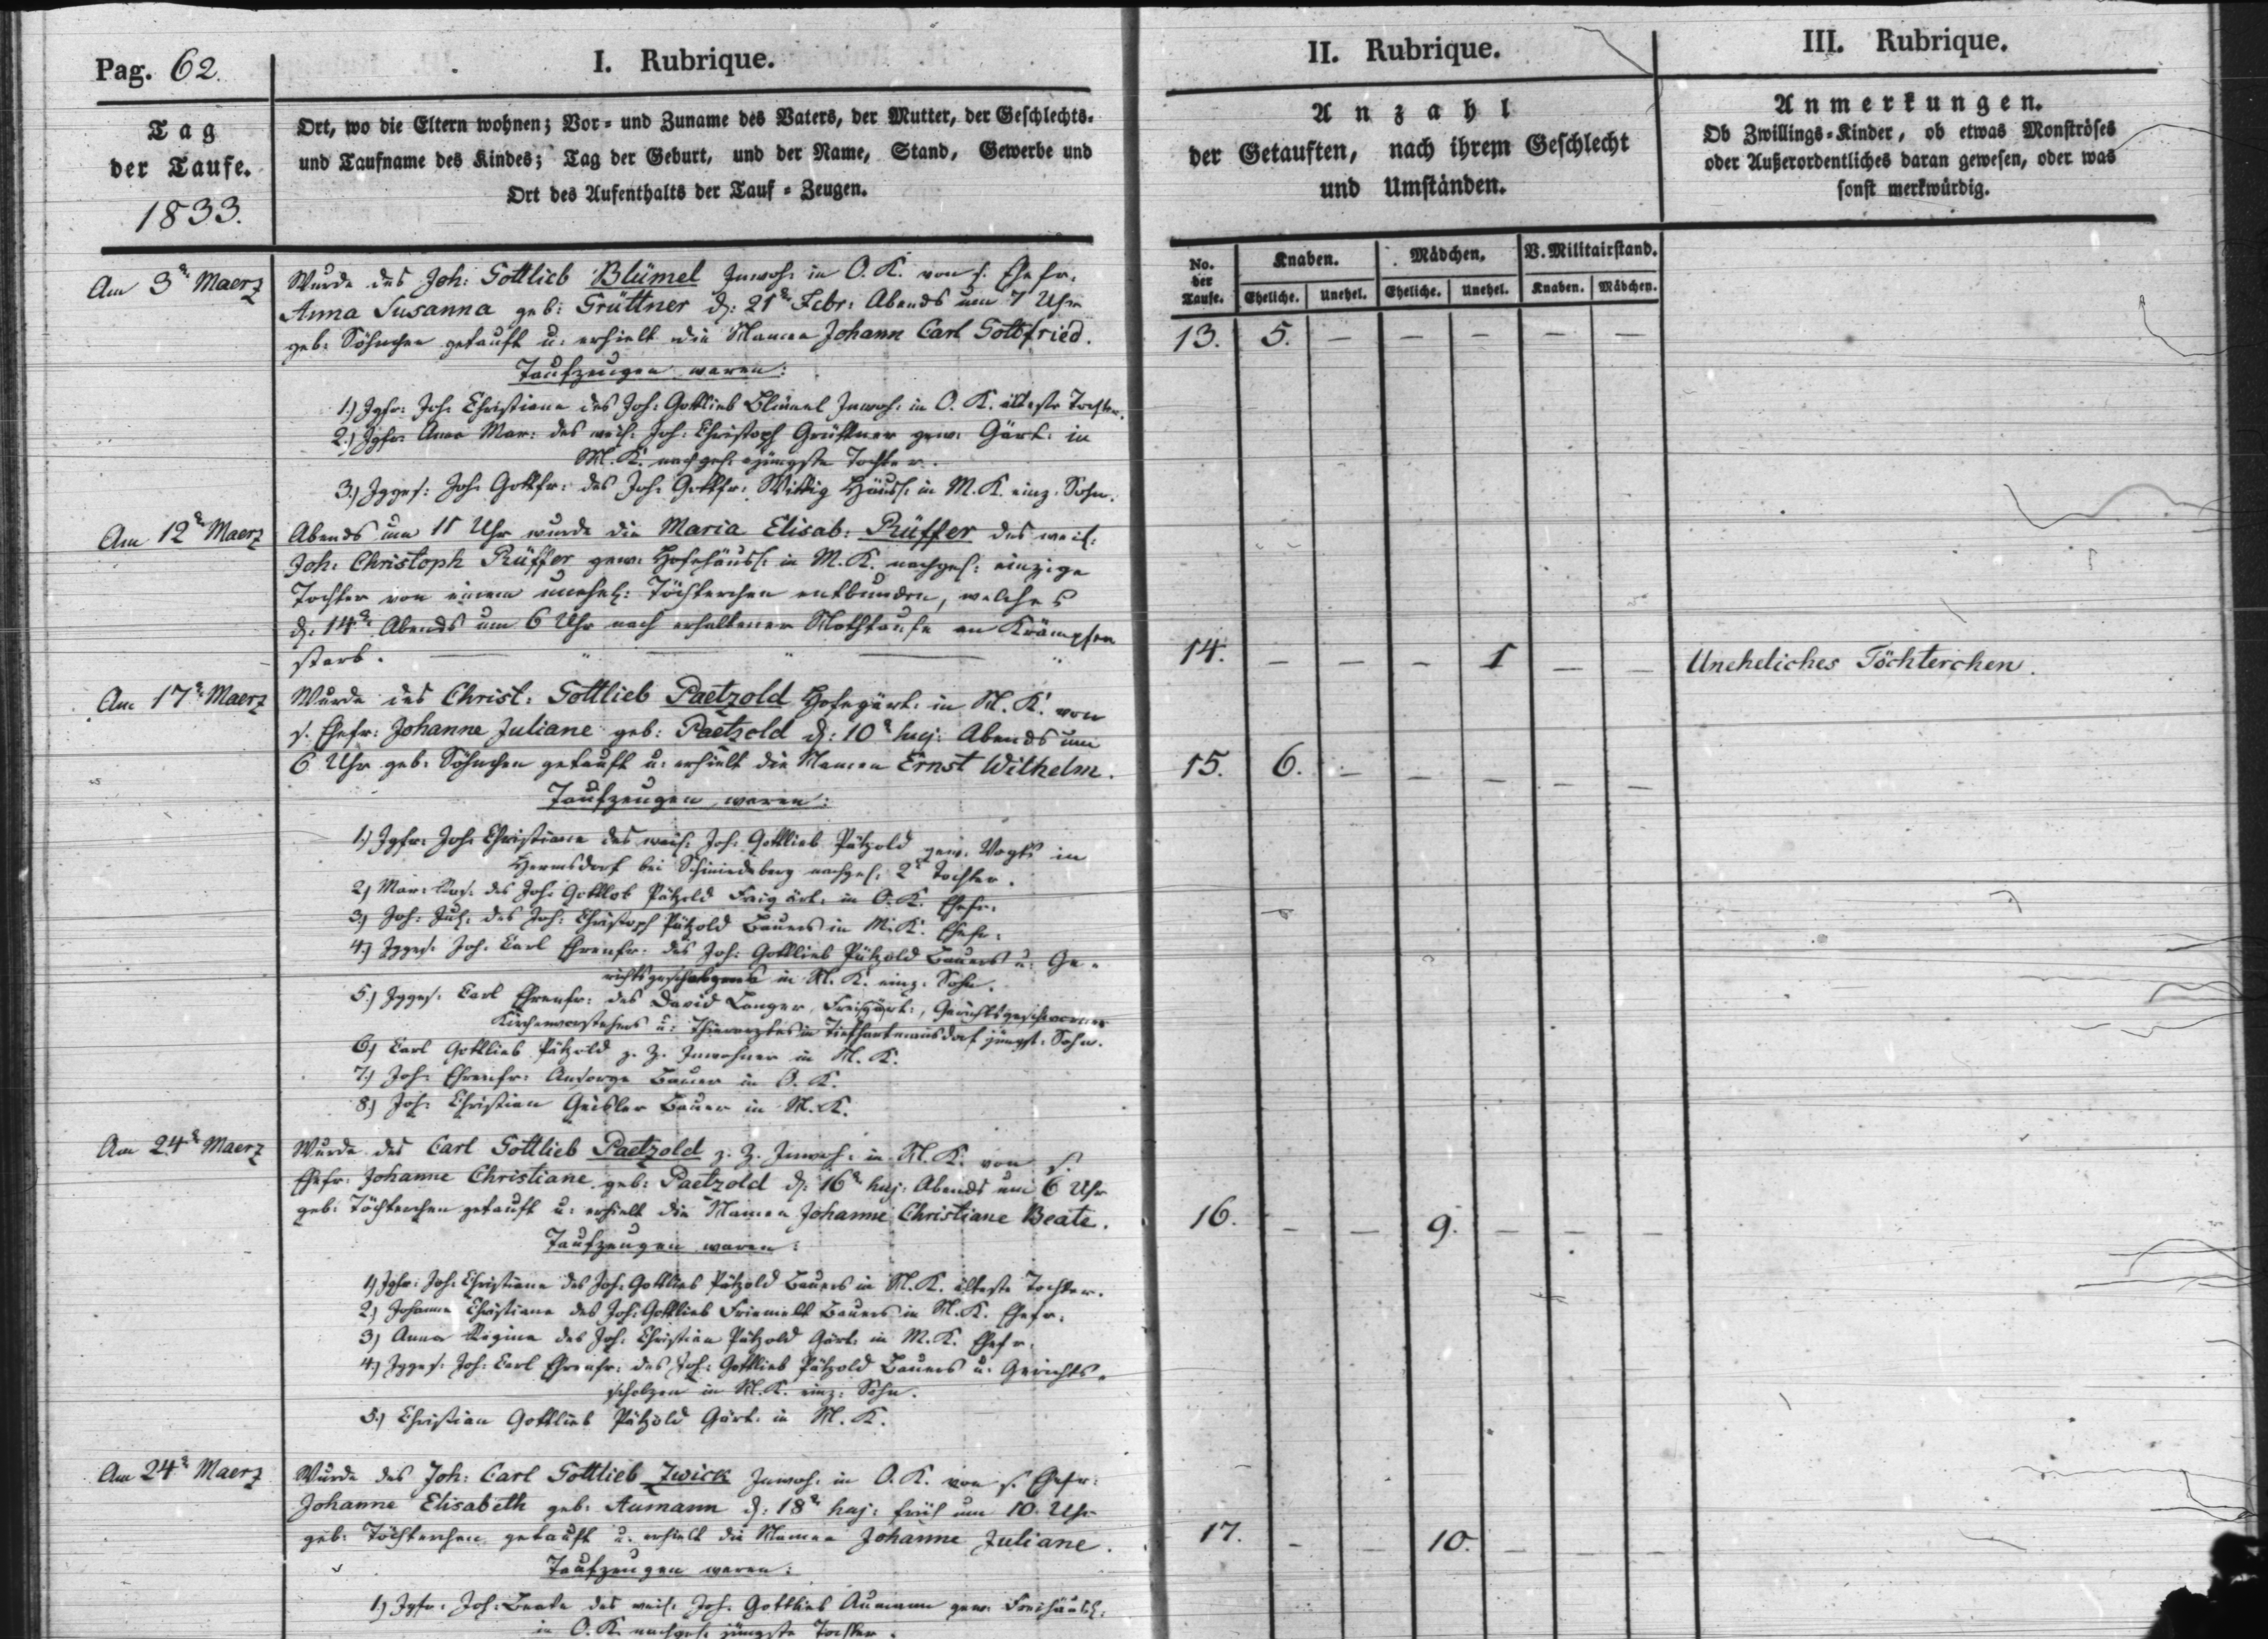 Pag. 62.
I. Rubrique.
II. Rubrique.
III. Rubrique.
Tag
der Taufe.
1833.
Ort, wo die Eltern wohnen; Vor- und Zuname des Vaters, der Mutter, der Geschlechts-
und Taufname des Kindes; Tag der Geburt, und der Name, Stand, Gewerbe und
Ort des Aufenthalts der Tauf-Zeugen.
Anzahl
der Getauften, nach ihrem Geschlecht
und Umständen.
Anmerkungen.
Ob Zwillings-Kinder, ob etwas Monströses
oder Außerordentliches daran gewesen, oder was
sonst merkwürdig.
No. der Taufe.
Knaben. Mädchen. V. Militairstand.
Eheliche. Unehel. Eheliche. Unehel. Knaben. Mädchen.
Am 3t Maerz
Wurde des Joh: Gottlieb Blümel Inwoh: in O. K. von s. Ehefr.
Anna Susanna geb: Grüttner d: 21t Febr: Abends um 7 Uhr
geb: Söhnchen getauft u: erhielt die Namen Johann Carl Gottfried.
13. 5. — — — — —
Taufzeugen waren:
1.) Jgfr: Joh: Christiane des Joh: Gottlieb Blümel Inwoh: in O. K. älteste Tochter.
2.) Jgfr: Anna Mar: des weil: Joh: Christoph Grüttner gew: Gärt: in
M. K. nachgel: jüngste Tochter.
3.) Jgges: Joh: Gottfr: des Joh: Gottfr: Wittig Häusl: in M. K. einz. Sohn.
Am 12t Maerz
Abends um 11 Uhr wurde die Maria Elisab: Rüffer des weil:
Joh: Christoph Rüffer gew: Hofehäusl: in M. K. nachgel: einzige
Tochter von einem unehel: Töchterchen entbunden, welches
d: 14t Abends um 6 Uhr nach erhaltener Nothtaufe an Krämpfen
starb.
14. — — — 1 — — Uneheliches Töchterchen.
Am 17t Maerz
Wurde des Christ: Gottlieb Paetzold Hofegärt: in M. K. von
s. Ehefr: Johanne Juliane geb: Paetzold d: 10t huj: Abends um
6 Uhr geb: Söhnchen getauft u: erhielt die Namen Ernst Wilhelm.
15. 6. — — — — —
Taufzeugen waren:
1.) Jgfr: Joh: Christiane des weil: Joh: Gottlieb Pätzold gew: Vogts in
Hermsdorf bei Schmiedeberg nachgel: 2t Tochter.
2.) Mar: Ros: des Joh: Gottlob Pätzold Freigärt: in O. K. Ehefr:
3.) Joh: Jul: des Joh: Christoph Pätzold Bauers in M. K. Ehefr:
4.) Jgges: Joh: Carl Ehrenfr: des Joh: Gottlieb Pätzold Bauers u: Ge-
in M. K. einz: Sohn.
5.) Jgges: Carl Ehrenfr: des David Langer, Freigärt:, Gerichtsgeschworner
Kirchenvorstehers u: Thierarztes in Tiefhartmansdorf jüngst: Sohn.
6.) Carl Gottlieb Pätzold z. Z. Inwohner in M. K.
7.) Joh: Ehrenfr: Ansorge Bauer in O. K.
8.) Joh: Christian Geisler Bauer in M. K.
Am 24t Maerz
Wurde des Carl Gottlieb Paetzold z. Z. Inwoh: in M. K. von s.
Ehefr: Johanne Christiane geb: Paetzold d: 16t huj: Abends um 6 Uhr
geb: Töchterchen getauft u: erhielt die Namen Johanne Christiane Beate.
16. — — 9. — — —
Taufzeugen waren:
1.) Jgfr: Joh: Christiane des Joh: Gottlieb Pätzold Bauers in M. K. älteste Tochter.
2.) Johanne Christiane des Joh: Gottlieb Friemelt Bauers in M. K. Ehefr:
3.) Anna Regina des Joh: Christian Pätzold Gärt: in M. K. Ehefr:
4.) Jgges: Joh: Carl Ehrenfr: des Joh: Gottlieb Pätzold Bauers u: Gerichts-
scholzen in M. K. einz: Sohn.
5.) Christian Gottlieb Pätzold Gärt: in M. K.
Am 24t Maerz
Wurde des Joh: Carl Gottlieb Zwick Inwoh: in O. K. von s. Ehefr:
Johanne Elisabeth geb: Aumann d: 18t huj: früh um 10 Uhr
geb: Töchterchen getauft u: erhielt die Namen Johanne Juliane.
17. — — 10. — — —
Taufzeugen waren:
1.) Jgfr: Joh: Beate des weil: Joh: Gottlieb Aumann gew: Freihäusl:
in O. K. nachgel: jüngste Tochter.